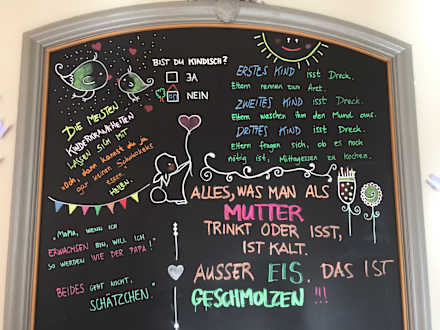 BIST DU KINDISCH?
JA
NEIN
DIE MEISTEN
KINDERKRANKHEITEN
LASSEN SICH MIT
"och, dann kannst du ja
gar keine Schokokeks
essen"
HEILEN.
"MAMA, WENN ICH
ERWACHSEN BIN, WILL ICH
SO WERDEN WIE DER PAPA!"
"BEIDES GEHT NICHT,
SCHÄTZCHEN."
ERSTES KIND isst Dreck.
Eltern rennen zum Arzt.
ZWEITES KIND isst Dreck.
Eltern waschen ihm den Mund aus.
DRITTES KIND isst Dreck.
Eltern fragen sich, ob es noch
nötig ist, Mittagessen zu kochen.
ALLES, WAS MAN ALS
MUTTER
TRINKT ODER ISST,
IST KALT.
AUSSER EIS. DAS IST
GESCHMOLZEN!!!